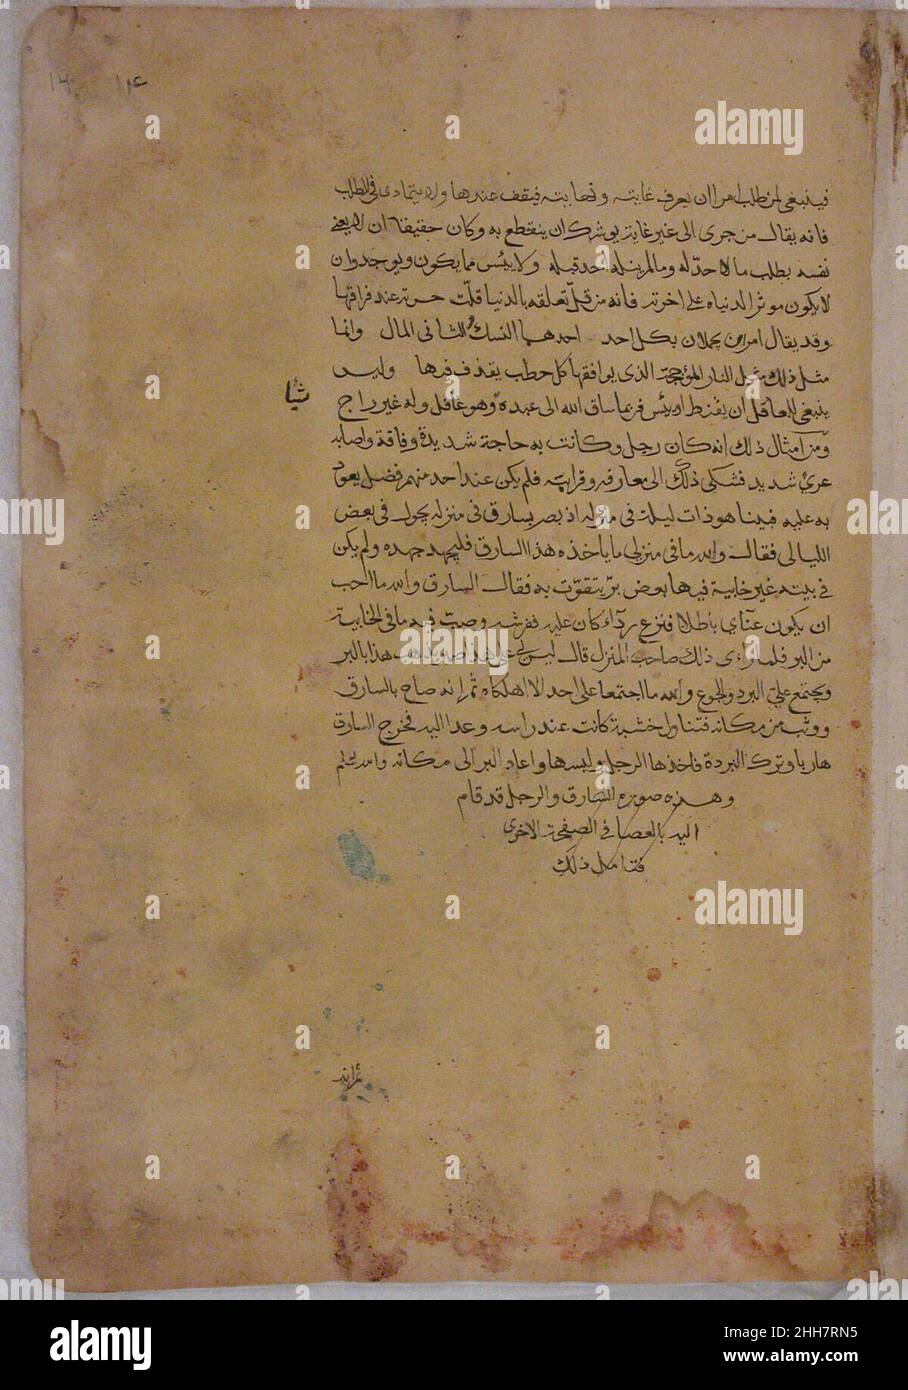 ١٤ 14
فينبغي لمن طلب امرا ان يعرف غايته ونهايته فيقف عندها ولا يتمادى في الطلب
فانه يقال من جرى الى غير غاية يوشك ان ينقطع به وكان حقيقا ان لا يعني
نفسه بطلب ما لا حد له وما لم ينله احد قبله ولا يئس مما يكون ويوجد وان
لا يكون موثرا لدنياه على اخرته فانه من قل تعلقه بالدنيا قلت حسرته عند فراقها
وقد يقال امران يجملان بكل احد احدهما النسك والثاني المال وانما
مثل ذلك مثل النار المؤججة الذي يوافقها كل حطب يقذف فيها وليس
شيأ
ينبغي للعاقل ان يقنط او يئس فربما ساق الله الى عبده وهو غافل وله غير راج
ومن امثال ذلك انه كان رجل وكانت به حاجة شديدة وفاقة واصابه
عري شديد فشكى ذلك الى معارفه وقرابته فلم يكن عند احد منهم فضل يعود
به عليه فبينا هو ذات ليلة في منزله اذ بصر بسارق في منزله يجول في بعض
الليالي فقال والله ما في منزلي ما ياخذه هذا السارق فليجهد جهده ولم يكن
في بيته غير خابية فيها بعض بر يتقوت به فقال السارق والله ما احب
ان يكون عنآي باطلا فنزع رداء كان عليه ففرشه وصب فيه ما في الخابية
من البر فلما راى ذلك صاحب المنزل قال ليس لي على هذا صبر يذهب هذا بالبر
ويجتمع علي البرد والجوع والله ما اجتمعا على احد الا اهلكاه ثم انه صاح بالسارق
ووثب من مكانه فتناول خشبة كانت عند راسه وعدا اليه فخرج السارق
هاربا وترك البردة فاخذها الرجل ولبسها واعاد البر الى مكانه والله يعلم
وهذه صورة السارق والرجل قد قام
اليه بالعصا في الصفحة الاخرى
فتامل ذلك
alamy
alamy
alamy
Image ID: 2HH7RN5
www.alamy.com